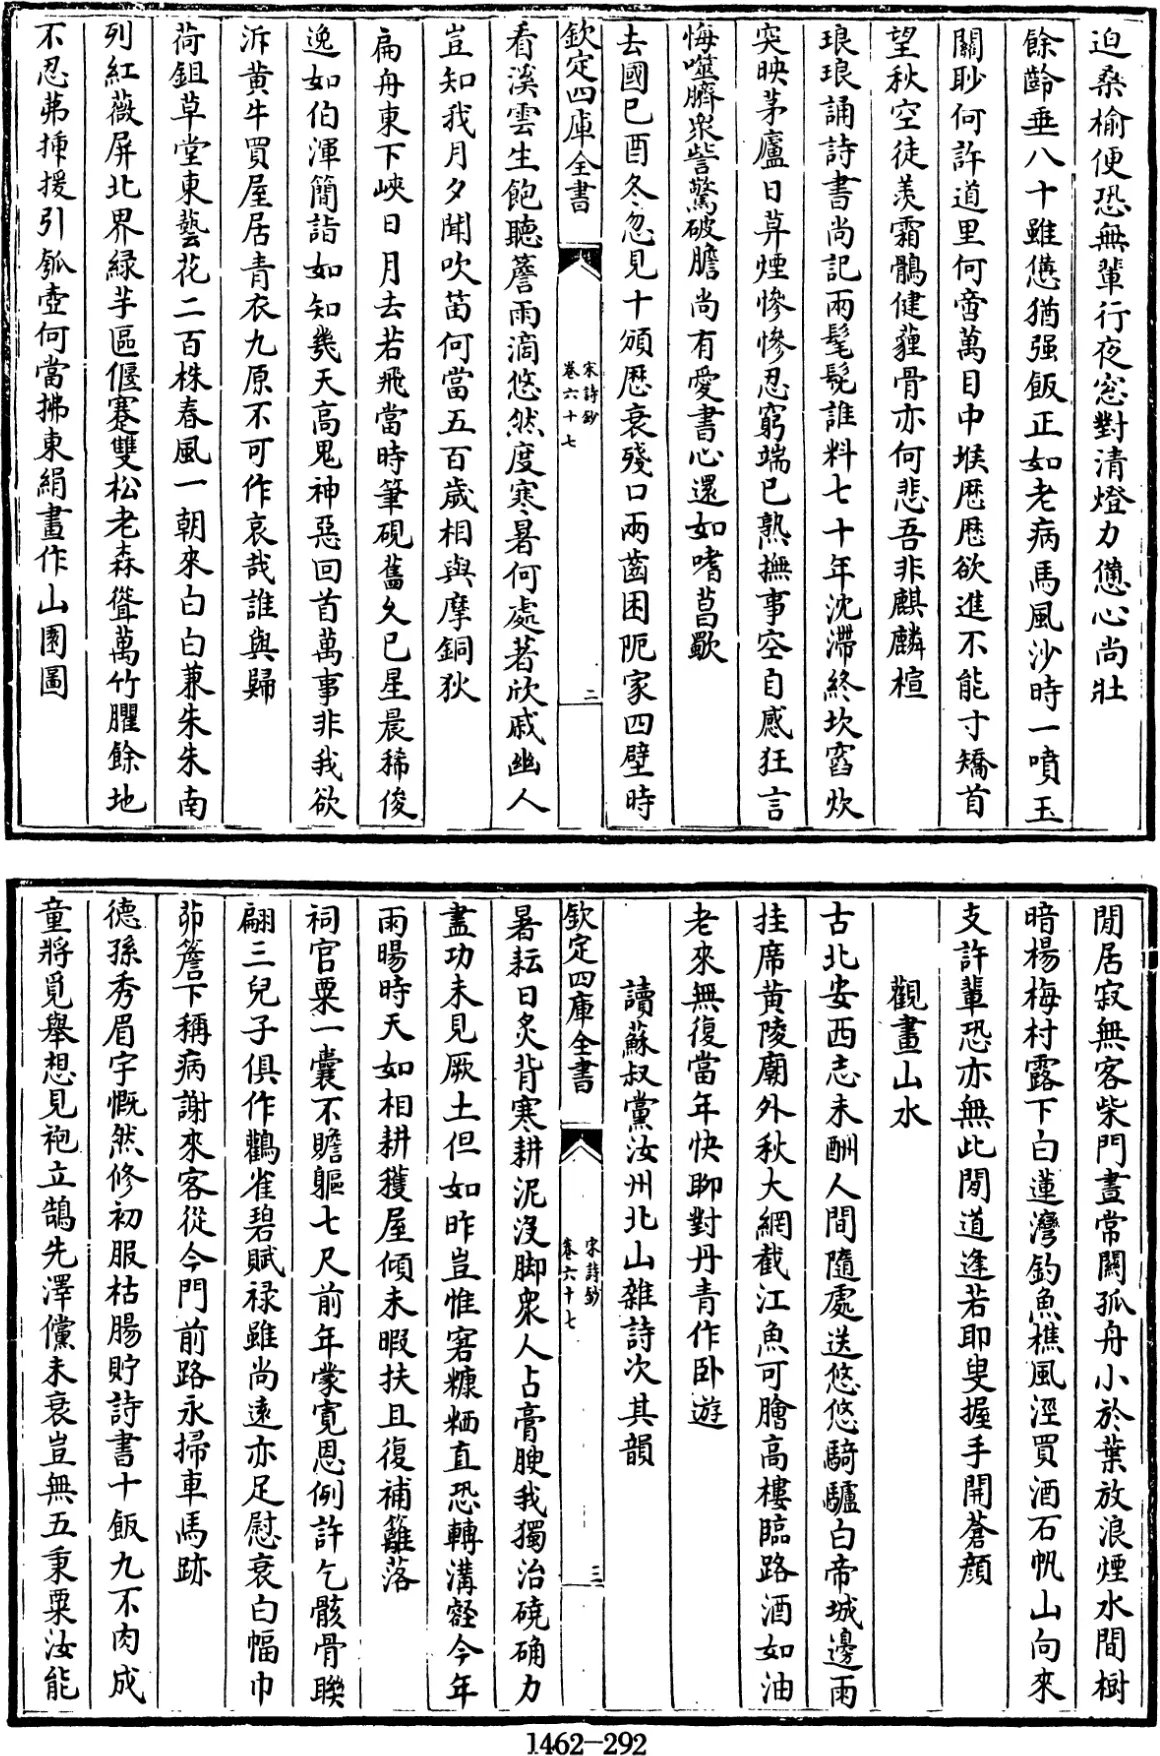 迫桑榆便恐無輩行夜窓對清燈力憊心尚壯
餘齡垂八十雖憊猶强飯正如老病馬風沙時一噴玉
關眇何許道里何啻萬目中堠歷歷欲進不能寸矯首
望秋空徒羨霜鶻健薶骨亦何悲吾非麒麟楦
琅琅誦詩書尚記兩髦髧誰料七十年沈滯終坎窞炊
突映茅廬日莫煙慘慘忍窮端已熟撫事空自感狂言
悔噬臍衆訾驚破膽尚有愛書心還如嗜菖歜
去國已酉冬忽見十頒歷衰殘口兩齒困阨家四壁時
欽定四庫全書
宋詩鈔
卷六十七
二
看溪雲生飽聽簷雨滴悠然度寒暑何處著欣戚幽人
豈知我月夕聞吹笛何當五百歲相與摩銅狄
扁舟東下峽日月去若飛當時筆硯舊久已星晨稀俊
逸如伯渾簡詣如知幾天高鬼神惡回首萬事非我欲
泝黄牛買屋居青衣九原不可作哀哉誰與歸
荷鉏草堂東藝花二百株春風一朝來白白兼朱朱南
列紅薇屏北界綠芋區偃蹇雙松老森聳萬竹臞餘地
不忍弗揮援引瓠壺何當拂東絹畫作山園圖
閒居寂無客柴門晝常關孤舟小於葉放浪煙水間樹
暗楊梅村露下白蓮灣釣魚樵風涇買酒石帆山向來
支許輩恐亦無此閒道逢若耶叟握手開蒼顔
觀畫山水
古北安西志未酬人間隨處送悠悠騎驢白帝城邊雨
挂席黄陵廟外秋大網截江魚可膾高樓臨路酒如油
老來無復當年快聊對丹青作卧遊
讀蘇叔黨汝州北山雜詩次其韻
欽定四庫全書
宋詩鈔
卷六十七
三
暑耘日炙背寒耕泥没脚衆人占膏腴我獨治磽确力
盡功未見厥土但如昨豈惟窘糠粞直恐轉溝壑今年
雨暘時天如相耕穫屋傾未暇扶且復補籬落
祠官粟一囊不贍軀七尺前年蒙寛恩例許乞骸骨聮
翩三兒子俱作鸛雀碧賦禄雖尚遠亦足慰衰白幅巾
茆簷下稱病謝來客從今門前路永掃車馬跡
德孫秀眉宇慨然修初服枯腸貯詩書十飯九不肉成
童將覓舉想見袍立鵠先澤儻未衰豈無五秉粟汝能
1462-292